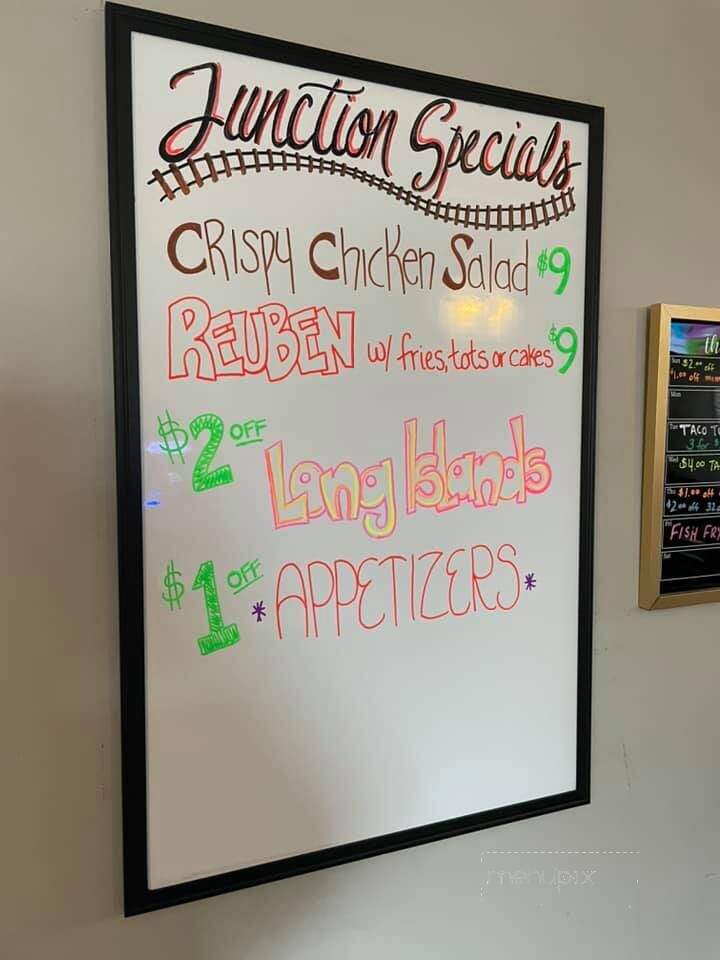 Junction Specials
Crispy Chicken Salad $9
REUBEN w/ fries, tots or cakes $9
$2 OFF Long Islands
$1 OFF *APPETIZERS*
th
Sun $2.00 off
$1.00 off
Mon
Tue TACO
3 for $
Wed $4.00
Thu $1.00 off
$2.00 off 32
Fri FISH FRY
Sat
menupix